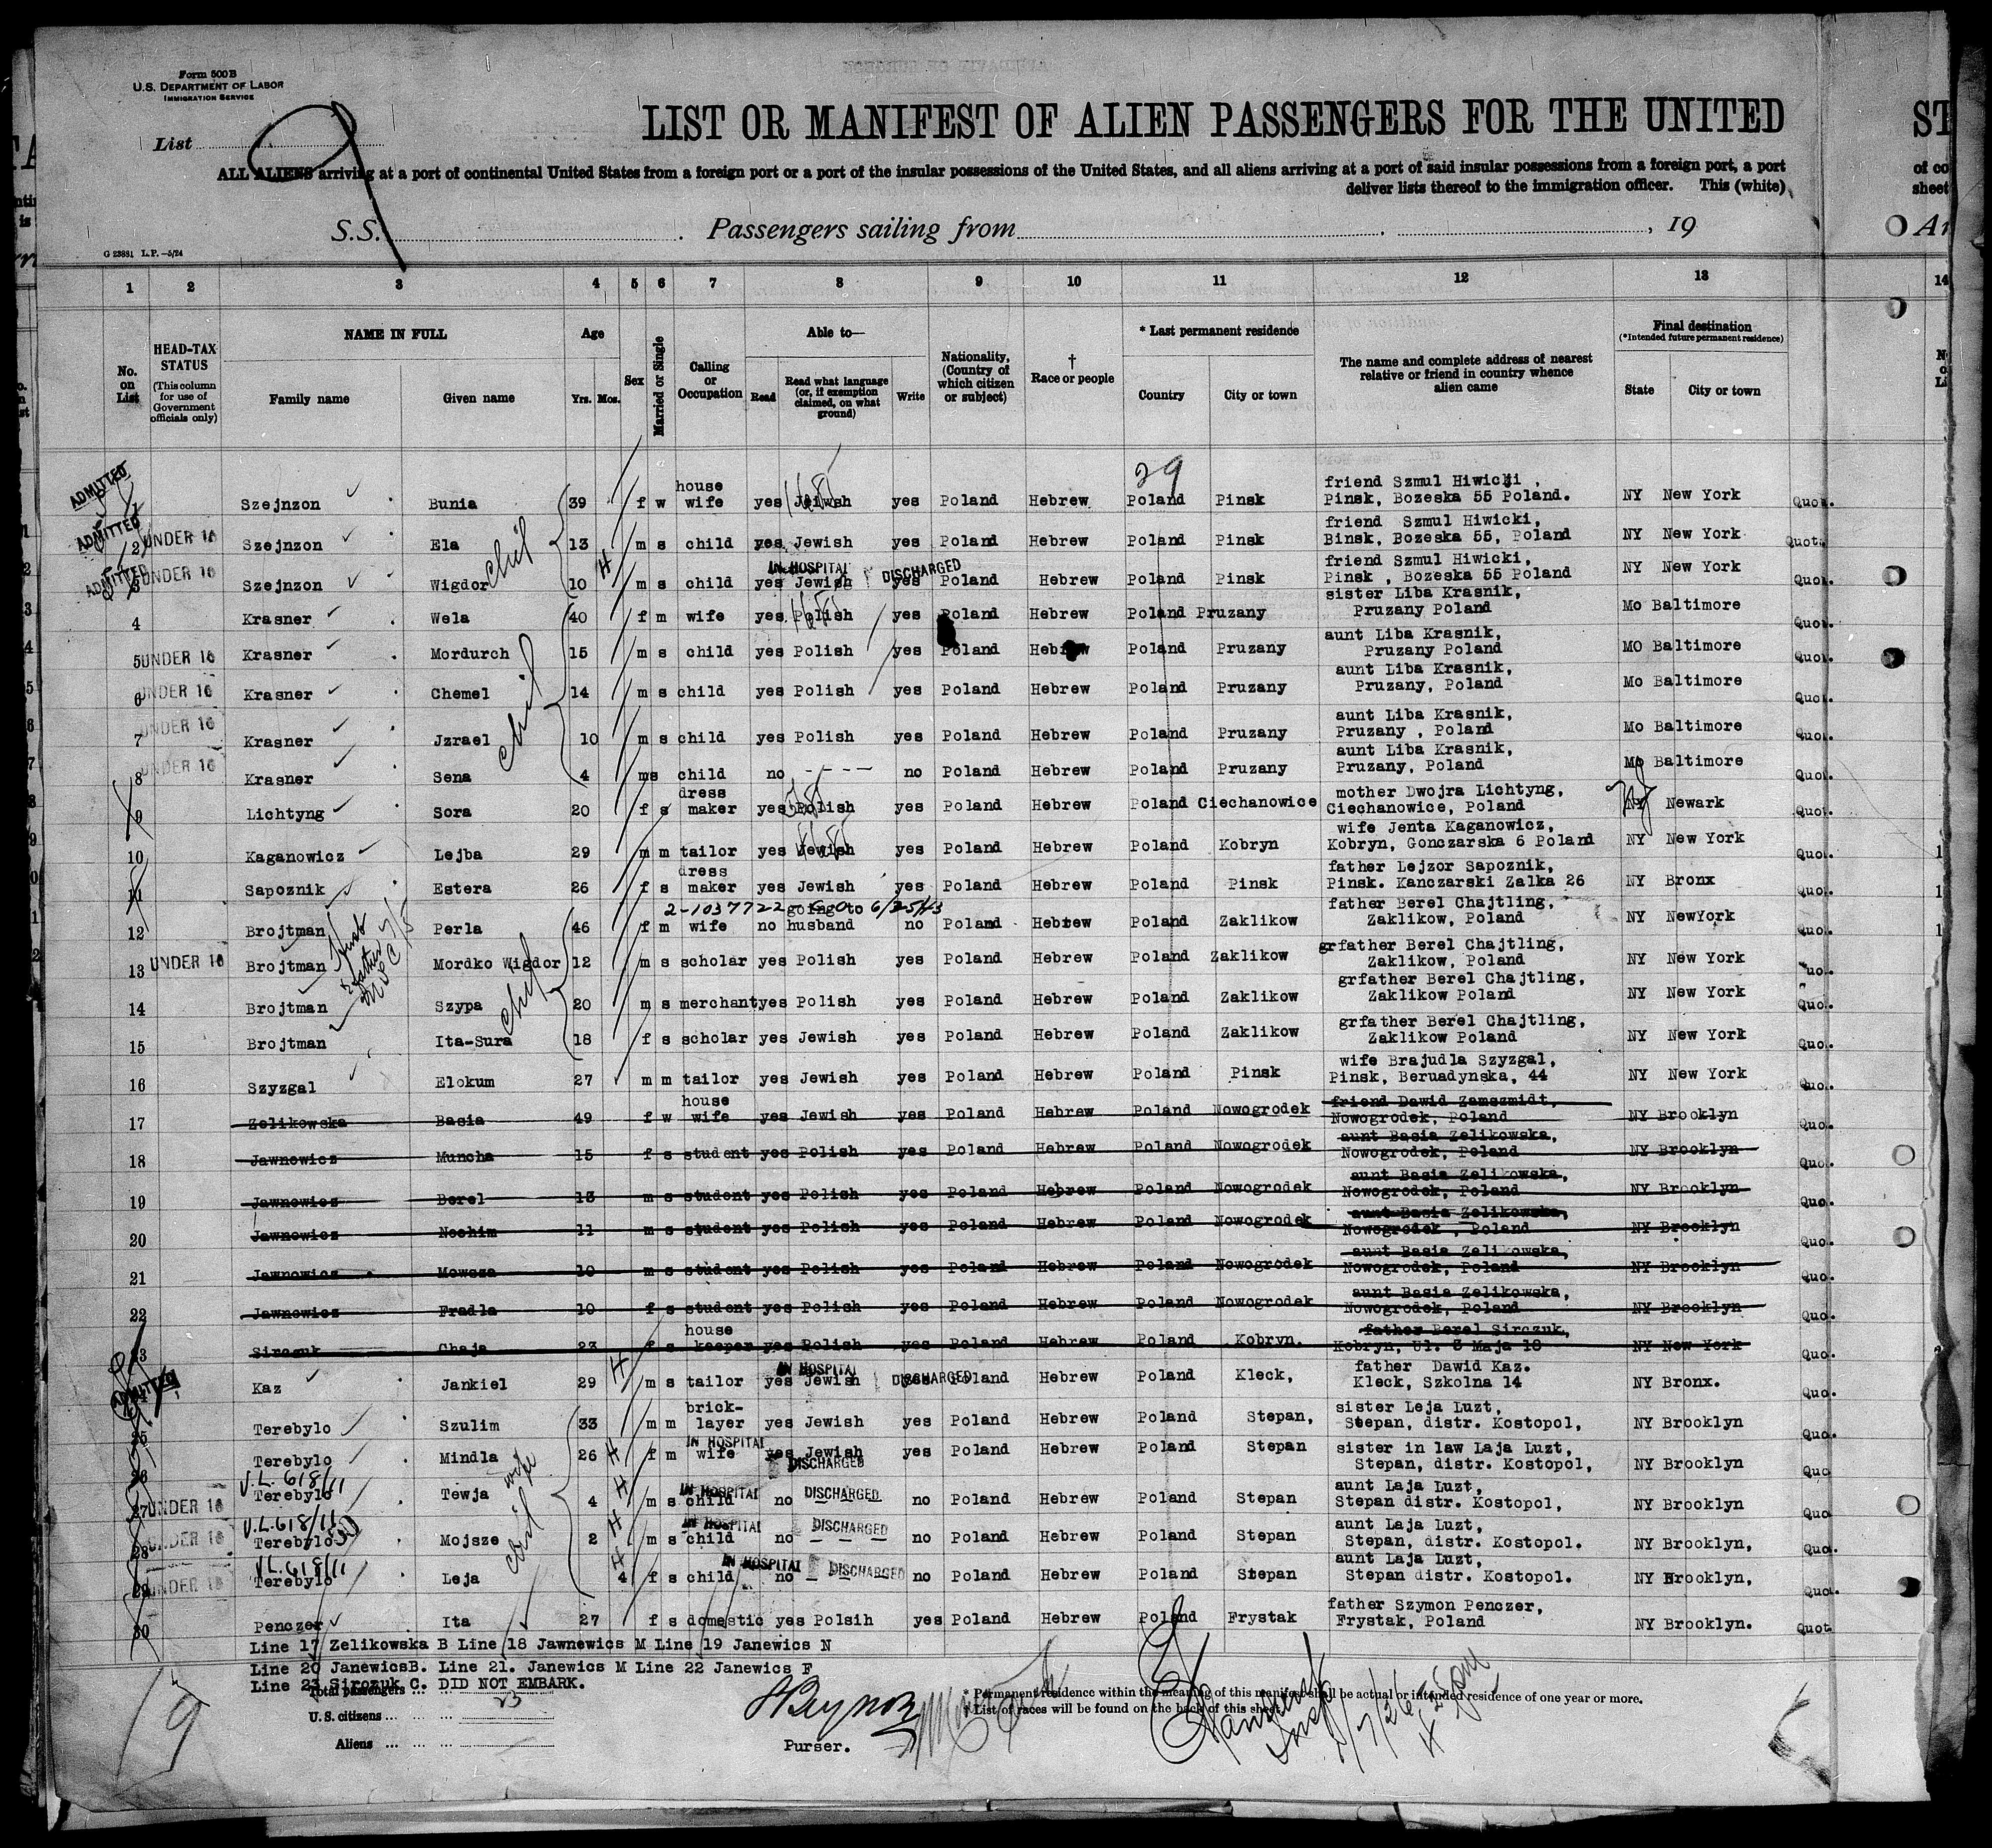 Form 500 B
U.S. DEPARTMENT OF LABOR
IMMIGRATION SERVICE
List
LIST OR MANIFEST OF ALIEN PASSENGERS FOR THE UNITED
ST
ALL ALIENS arriving at a port of continental United States from a foreign port or a port of the insular possessions of the United States, and all aliens arriving at a port of said insular possessions from a foreign port, a port
of co
deliver lists thereof to the immigration officer. This (white)
sheet
S.S. Passengers sailing from , 19
G 23881 L.P.—5/24
1 2 3 4 5 6 7 8 9 10 11 12 13 14
No. on List
HEAD-TAX STATUS (This column for use of Government officials only)
NAME IN FULL
Family name Given name
Age Yrs. Mos.
Sex
Married or Single
Calling or Occupation
Able to—
Read Read what language (or, if exemption claimed, on what ground) Write
Nationality, (Country of which citizen or subject)
† Race or people
* Last permanent residence
Country City or town
The name and complete address of nearest relative or friend in country whence alien came
Final destination
(*Intended future permanent residence)
State City or town
29
ADMITTED Szejnzon Bunia 39 f w house wife yes Jeiwsh yes Poland Hebrew Poland Pinsk friend Szmul Hiwicki, Pinsk, Bozeska 55 Poland. NY New York Quo.
ADMITTED 2 UNDER 16 Szejnzon Ela 13 m s child yes Jewish yes Poland Hebrew Poland Pinsk friend Szmul Hiwicki, Binsk, Bozeska 55, Poland NY New York Quot.
ADMITTED 3 UNDER 16 Szejnzon Wigdor 10 H m s child yes Jewish yes IN HOSPITAL DISCHARGED Poland Hebrew Poland Pinsk friend Szmul Hiwicki, Pinsk , Bozeska 55 Poland NY New York Quo.
4 Krasner Wela 40 f m wife yes Polish yes Poland Hebrew Poland Pruzany sister Liba Krasnik, Pruzany Poland Mo Baltimore Quo.
5 UNDER 16 Krasner Mordurch 15 m s child yes Polish yes Poland Hebrew Poland Pruzany aunt Liba Krasnik, Pruzany Poland MO Baltimore Quo.
6 UNDER 16 Krasner Chemel 14 m s child yes Polish yes Poland Hebrew Poland Pruzany aunt Liba Krasnik, Pruzany, Poland Mo Baltimore Quo.
7 UNDER 16 Krasner Jzrael 10 m s child yes Polish yes Poland Hebrew Poland Pruzany aunt Liba Krasnik, Pruzany , Poland Mo Baltimore Quo.
8 UNDER 16 Krasner Sena 4 ms child no - - - - no Poland Hebrew Poland Pruzany aunt Liba Krasnik, Pruzany, Poland Mo Baltimore Quo.
9 Lichtyng Sora 20 f s dress maker yes Polish yes Poland Hebrew Poland Ciechanowice mother Dwojra Lichtyng, Ciechanowice, Poland NY NJ Newark Quo.
10 Kaganowicz Lejba 29 m m tailor yes Jewish yes Poland Hebrew Poland Kobryn wife Jenta Kaganowicz, Kobryn, Gonczarska 6 Poland NY New York Quo.
11 Sapoznik Estera 26 f s dress maker yes Jewish yes Poland Hebrew Poland Pinsk father Lejzor Sapoznik, Pinsk. Kanczarski Zalka 26 NY Bronx Quo.
2-1037722 6/25/43
12 Brojtman Perla 46 f m wife no going to husband no Poland Hebrew Poland Zaklikow father Berel Chajtling, Zaklikow, Poland NY NewYork Quo.
13 UNDER 16 Brojtman Mordko Wigdor 12 m s scholar yes Polish yes Poland Hebrew Poland Zaklikow grfather Berel Chajtling, Zaklikow, Poland NY New York Quo.
14 Brojtman Szypa 20 m s merchant yes Polish yes Poland Hebrew Poland Zaklikow grfather Berel Chajtling, Zaklikow Poland NY New York Quo.
15 Brojtman Ita-Sura 18 f s scholar yes Jewish yes Poland Hebrew Poland Zaklikow grfather Berel Chajtling, Zaklikow Poland NY New York Quo.
16 Szyzgal Elokum 27 m m tailor yes Jewish yes Poland Hebrew Poland Pinsk wife Brajudla Szyzgal, Pinsk, Beruadynska, 44 NY New York Quo.
17 Zelikowska Basia 49 f w house wife yes Jewish yes Poland Hebrew Poland Nowogrodek friend Dawid Zamszmidt, Nowogrodek, Poland NY Brooklyn Quo.
18 Jawnowicz Muncha 15 f s student yes Polish yes Poland Hebrew Poland Nowogrodek aunt Basia Zelikowska, Nowogrodek, Poland NY Brooklyn Quo.
19 Jawnowicz Berel 13 m s student yes Polish yes Poland Hebrew Poland Nowogrodek aunt Basia Zelikowska, Nowogrodek, Poland NY Brooklyn Quo.
20 Jawnowicz Nochim 11 m s student yes Polish yes Poland Hebrew Poland Nowogrodek aunt Basia Zelikowska, Nowogrodek, Poland NY Brooklyn Quo.
21 Jawnowicz Mowsza 10 m s student yes Polish yes Poland Hebrew Poland Nowogrodek aunt Basia Zelikowska, Nowogrodek, Poland NY Brooklyn Quo.
22 Jawnowicz Fradla 10 f s student yes Polish yes Poland Hebrew Poland Nowogrodek aunt Basia Zelikowska, Nowogrodek, Poland NY Brooklyn Quo.
23 Siroguk Chaja 23 f s house keeper yes Polish yes Poland Hebrew Poland Kobryn. father Berel Sirczuk, Kobryn, Ul. 3 Maja 10 NY New York Quo.
ADMITTED Kaz Jankiel 29 H m s tailor yes Jewish yes IN HOSPITAL DISCHARGED Poland Hebrew Poland Kleck, father Dawid Kaz. Kleck, Szkolna 14 NY Bronx. Quo.
25 Terebylo Szulim 33 m m brick-layer yes Jewish yes Poland Hebrew Poland Stepan, sister Leja Luzt, Stepan, distr. Kostopol, NY Brooklyn Quo.
26 Terebylo Mindla 26 H f m wife yes Jewish yes IN HOSPITAL DISCHARGED Poland Hebrew Poland Stepan sister in law Laja Luzt, Stepan, distr. Kostopol, NY Brooklyn Quo
27 UNDER 16 V.L. 618/11 Terebylo Tewja 4 H m s child no IN HOSPITAL DISCHARGED no Poland Hebrew Poland Stepan aunt Laja Luzt, Stepan distr. Kostopol, NY Brooklyn Quo
28 UNDER 16 V.L. 618/11 Terebylo Mojsze 2 H m s child no IN HOSPITAL DISCHARGED no Poland Hebrew Poland Stepan aunt Laja Luzt, Stepan, distr. Kostopol. NY Brooklyn, Quo.
29 UNDER 16 V.L. 618/11 Terebylo Leja 4 H f s child no IN HOSPITAL DISCHARGED no Poland Hebrew Poland Stepan aunt Laja Luzt, Stepan distr. Kostopol. NY Brooklyn, Quo.
30 Penczer Ita 27 f s domestic yes Polsih yes Poland Hebrew Poland Frystak father Szymon Penczer, Frystak, Poland NY Brooklyn. Quot
Line 17 Zelikowska B Line 18 Jawnewics M Line 19 Janewics N
Line 20 JanewicsB. Line 21. Janewics M Line 22 Janewics F
Line 23 Sirozuk C. DID NOT EMBARK.
Total passengers 23
U.S. citizens
Aliens
19
Purser.
* Permanent residence within the meaning of this manifest shall be actual or intended residence of one year or more.
† List of races will be found on the back of this sheet.